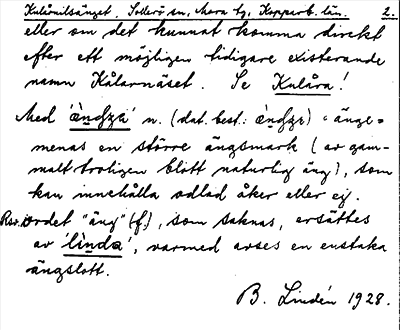 Kulåmilsänget. Sollerö sn, Mora tg, Kopparb. län. 2.
eller om det kunnat komma direkt
efter ett möjligen tidigare existerande
namn Kålarnäset. Se Kulåra!
Med 'ändʒa' n. (dat. best.: ändʒe) "änge"
menas en större ängsmark (av gam-
malt troligen blott naturlig äng), som
kan innehålla odlad åker eller ej.
Rsv.ordet "äng" (f.), som saknas, ersättes
av 'linda', varmed avses en enstaka
ängslott.
B. Lindén 1928.